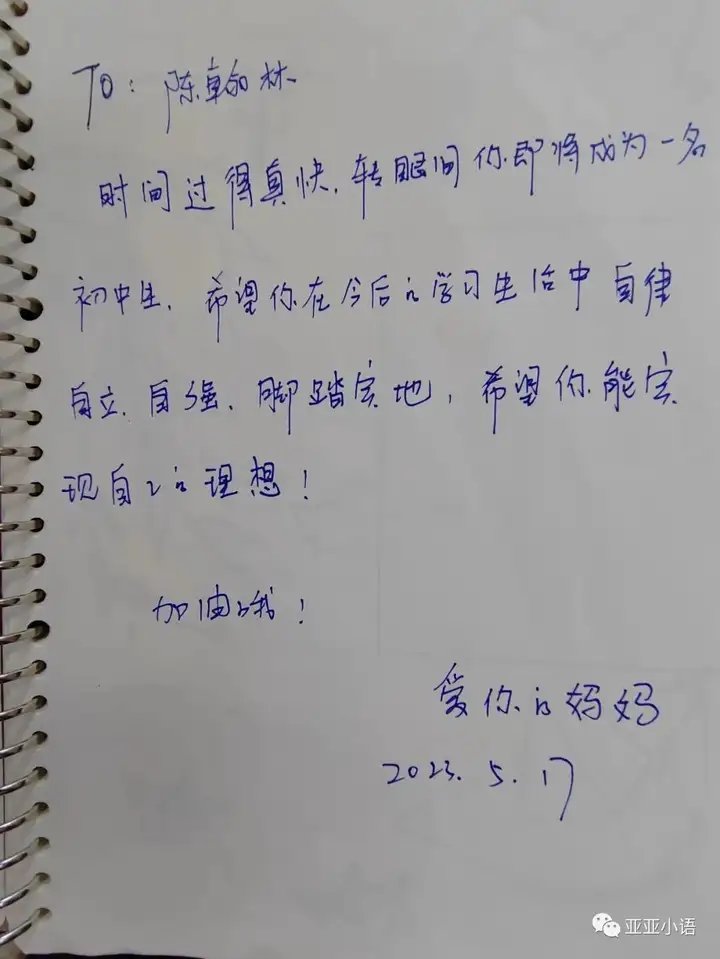 TO: 陈翰林
时间过得真快,转眼间你即将成为一名
初中生,希望你在今后的学习生活中自律
自立、自强、脚踏实地,希望你能实
现自己的理想!
加油哦!
爱你的妈妈
2023.5.17
亚亚小语